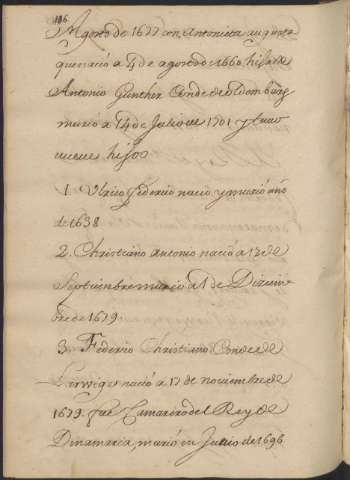 186
Agosto de 1677 con Antonieta augusta
que nació a 4 de agosto de 1660 hija de
Antonio Gunther Conde de oldemburg
murió a 14 de Julio de 1701 y tuvo
nueve hijos
1. Ulrico federico nació y murió año
de 1638
2. Christiano antonio nació a 12 de
Septiembre murió a 1 de Diziem
bre de 1679.
3. Federico Christiano Conde de
nació a 17 de noviembre de
1679. fue Camarero del Rey de
Dinamarca, murió en Junio de 1696